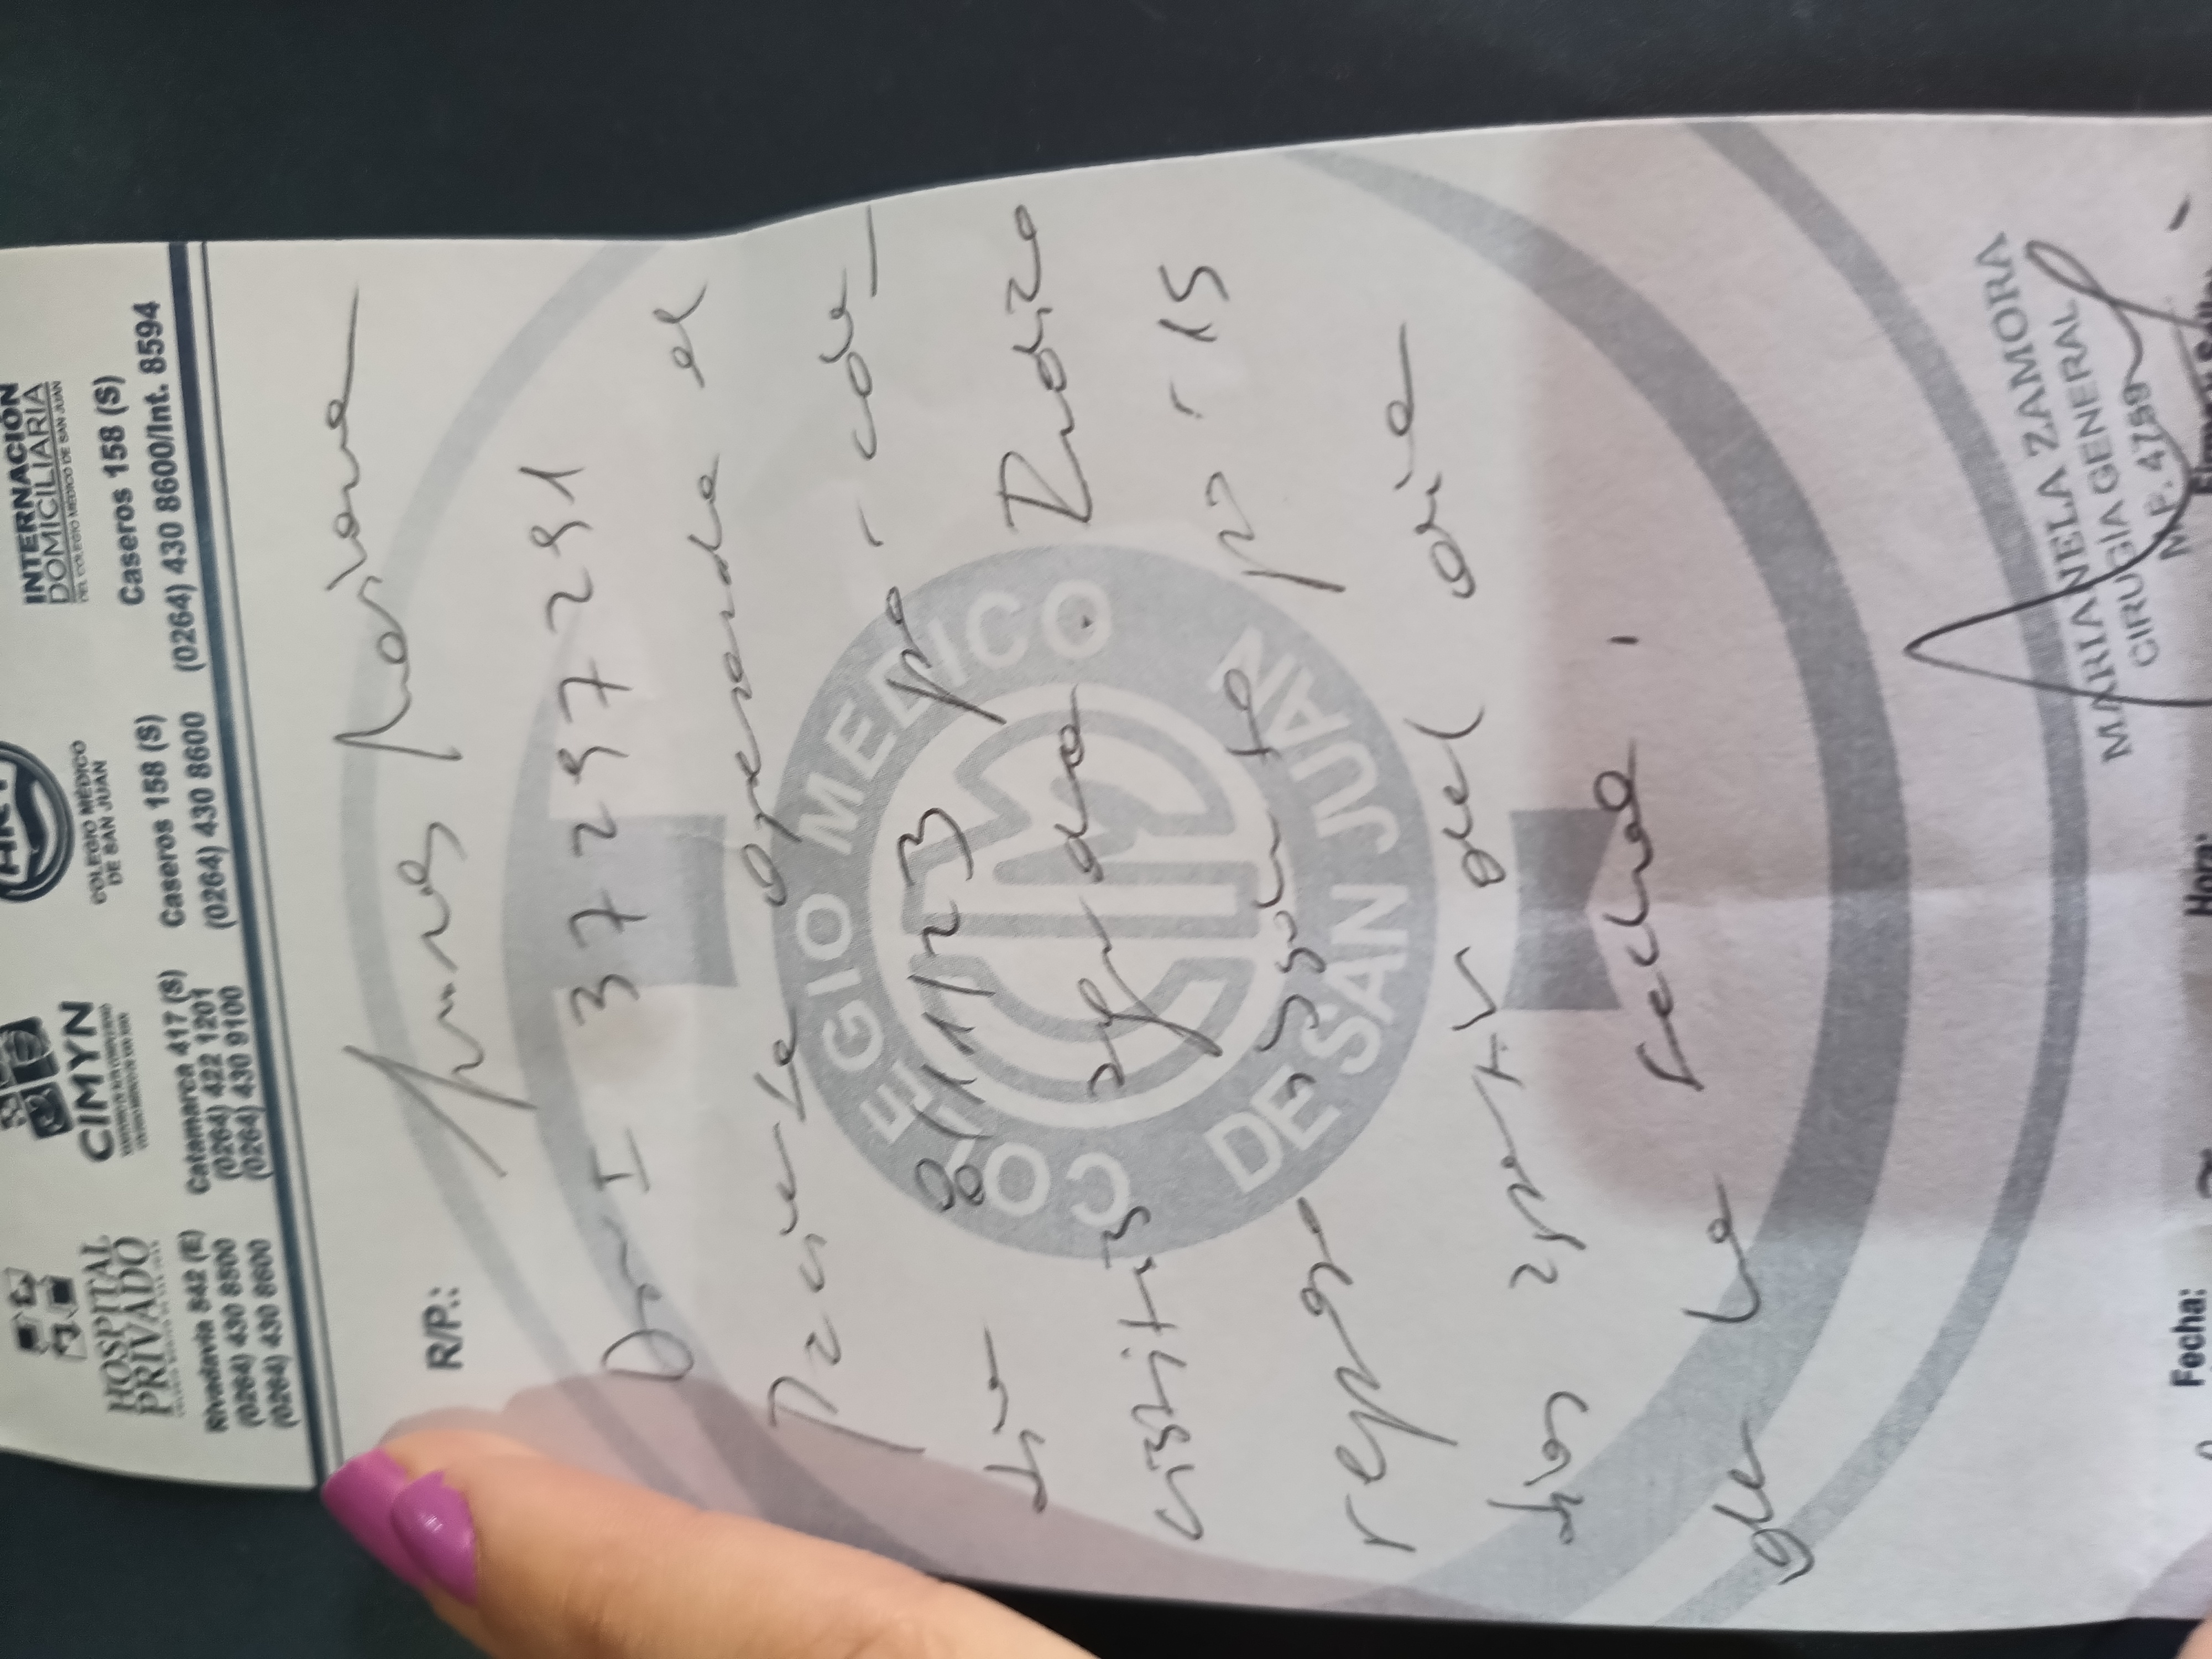 HOSPITAL
PRIVADO
Rivadavia 842 (E)
(0264) 430 8500
(0264) 430 8600
CIMYN
Catamarca 417 (S)
(0264) 422 1201
(0264) 430 9100
COLEGIO MEDICO
DE SAN JUAN
Caseros 158 (S)
(0264) 430 8600
INTERNACIÓN
DOMICILIARIA
DEL COLEGIO MEDICO DE SAN JUAN
Caseros 158 (S)
(0264) 430 8600/Int. 8594
R/P.:
Funes
DNI 37297291
Paciente operada el
día 8/11/23 por cole
cistitis aguda. Indico
reposo por 15
días a partir del día
de la fecha.
COLEGIO MEDICO
DE SAN JUAN
MARIANELA ZAMORA
CIRUGIA GENERAL
M.P. 4759
Fecha:
Hora: